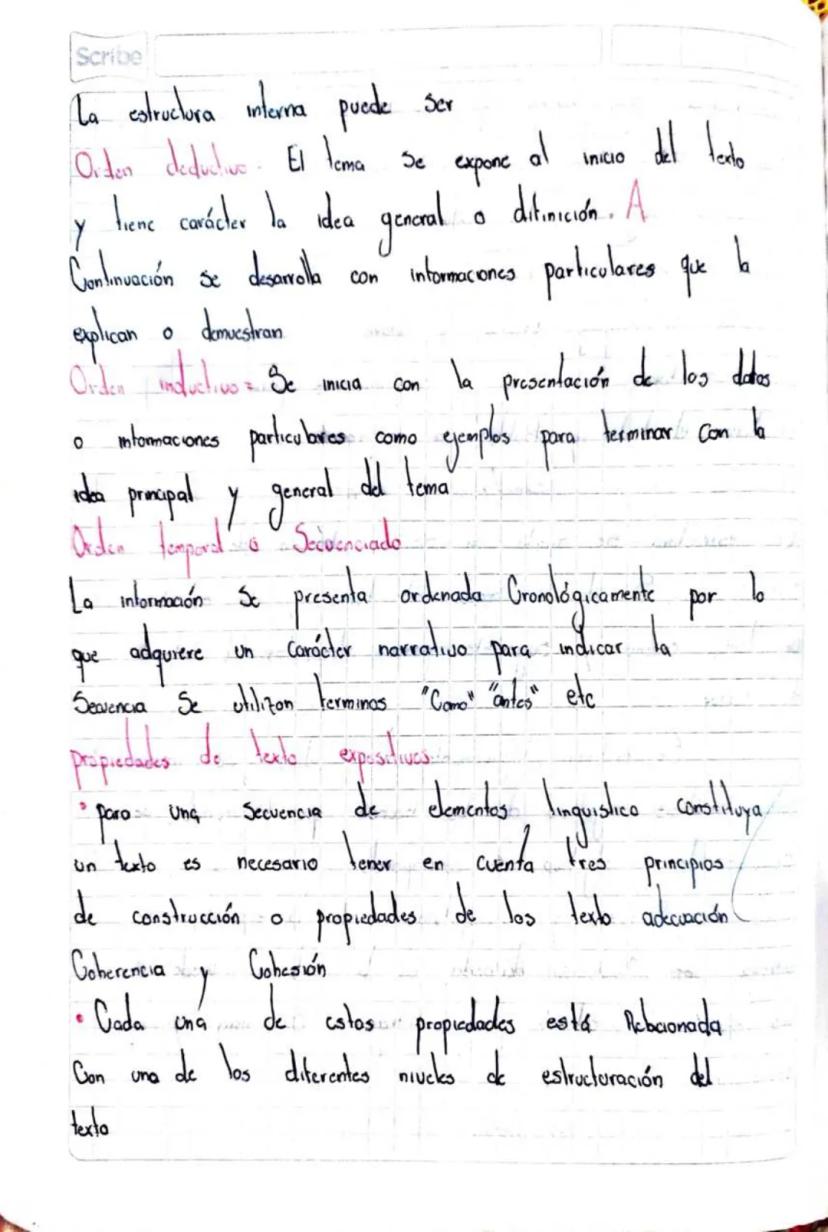 Scribe
La estructura interna puede ser
Orden deductivo. El tema se expone al inicio del texto
y tiene carácter la idea general o difinición. A
Continuación se desarrolla con informaciones particulares que la
explican o demuestran
Orden inductivo = Se inicia con la presentación de los datos
o informaciones particulares como ejemplos para terminar con la
idea principal y general del tema
Orden temporal o Secuenciado
La información Se presenta ordenada Cronológicamente por lo
que adquiere un Carácter narrativo para indicar la
Secuencia Se utilizan terminos "Como" "antes" etc
propiedades de texto expositivos
• para una Secuencia de elementos linguistico constituya
un texto es necesario tener en cuenta tres principios
de construcción o propiedades de los texto adecuación
Coherencia y Cohesión
• Cada una de estas propiedades está Relacionada
Con uno de los diferentes niveles de estructuración del
texto